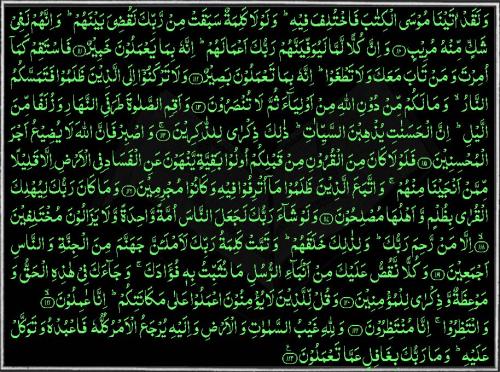 وَلَقَدْ اٰتَيْنَا مُوْسَى الْكِتٰبَ فَاخْتُلِفَ فِيْهِ ؕ وَلَوْلَا كَلِمَةٌ سَبَقَتْ مِنْ رَّبِّكَ لَقُضِىَ بَيْنَهُمْ ؕ وَاِنَّهُمْ لَفِىْ
شَكٍّ مِّنْهُ مُرِيْبٍ ﴿۱۱۰﴾ وَاِنَّ كُلًّا لَّمَّا لَيُوَفِّيَنَّهُمْ رَبُّكَ اَعْمَالَهُمْ ؕ اِنَّهٗ بِمَا يَعْمَلُوْنَ خَبِيْرٌ ﴿۱۱۱﴾ فَاسْتَقِمْ كَمَاۤ
اُمِرْتَ وَمَنْ تَابَ مَعَكَ وَلَا تَطْغَوْا ؕ اِنَّهٗ بِمَا تَعْمَلُوْنَ بَصِيْرٌ ﴿۱۱۲﴾ وَلَا تَرْكَنُوْۤا اِلَى الَّذِيْنَ ظَلَمُوْا فَتَمَسَّكُمُ
النَّارُ ۙ وَمَا لَكُمْ مِّنْ دُوْنِ اللّٰهِ مِنْ اَوْلِيَآءَ ثُمَّ لَا تُنْصَرُوْنَ ﴿۱۱۳﴾ وَاَقِمِ الصَّلٰوةَ طَرَفَىِ النَّهَارِ وَزُلَفًا مِّنَ
الَّيْلِ ؕ اِنَّ الْحَسَنٰتِ يُذْهِبْنَ السَّيِّاٰتِ ؕ ذٰلِكَ ذِكْرٰى لِلذّٰكِرِيْنَ ﴿۱۱۴﴾ وَاصْبِرْ فَاِنَّ اللّٰهَ لَا يُضِيْعُ اَجْرَ
الْمُحْسِنِيْنَ ﴿۱۱۵﴾ فَلَوْلَا كَانَ مِنَ الْقُرُوْنِ مِنْ قَبْلِكُمْ اُولُوْا بَقِيَّةٍ يَّنْهَوْنَ عَنِ الْفَسَادِ فِى الْاَرْضِ اِلَّا قَلِيْلًا
مِّمَّنْ اَنْجَيْنَا مِنْهُمْ ؕ وَاتَّبَعَ الَّذِيْنَ ظَلَمُوْا مَاۤ اُتْرِفُوْا فِيْهِ وَكَانُوْا مُجْرِمِيْنَ ﴿۱۱۶﴾ وَمَا كَانَ رَبُّكَ لِيُهْلِكَ
الْقُرٰى بِظُلْمٍ وَّاَهْلُهَا مُصْلِحُوْنَ ﴿۱۱۷﴾ وَلَوْ شَآءَ رَبُّكَ لَجَعَلَ النَّاسَ اُمَّةً وَّاحِدَةً وَّلَا يَزَالُوْنَ مُخْتَلِفِيْنَ
﴿۱۱۸﴾ اِلَّا مَنْ رَّحِمَ رَبُّكَ ؕ وَلِذٰلِكَ خَلَقَهُمْ ؕ وَتَمَّتْ كَلِمَةُ رَبِّكَ لَاَمْلَـَٔنَّ جَهَنَّمَ مِنَ الْجِنَّةِ وَالنَّاسِ
اَجْمَعِيْنَ ﴿۱۱۹﴾ وَكُلًّا نَّقُصُّ عَلَيْكَ مِنْ اَنْۢبَآءِ الرُّسُلِ مَا نُثَبِّتُ بِهٖ فُؤَادَكَ ۚ وَجَآءَكَ فِىْ هٰذِهِ الْحَقُّ وَ
مَوْعِظَةٌ وَّذِكْرٰى لِلْمُؤْمِنِيْنَ ﴿۱۲۰﴾ وَقُلْ لِّلَّذِيْنَ لَا يُؤْمِنُوْنَ اعْمَلُوْا عَلٰى مَكَانَتِكُمْ ؕ اِنَّا عٰمِلُوْنَ ﴿۱۲۱﴾
وَانْتَظِرُوْا ۚ اِنَّا مُنْتَظِرُوْنَ ﴿۱۲۲﴾ وَلِلّٰهِ غَيْبُ السَّمٰوٰتِ وَالْاَرْضِ وَاِلَيْهِ يُرْجَعُ الْاَمْرُ كُلُّهٗ فَاعْبُدْهُ وَتَوَكَّلْ
عَلَيْهِ ؕ وَمَا رَبُّكَ بِغَافِلٍ عَمَّا تَعْمَلُوْنَ ﴿۱۲۳﴾